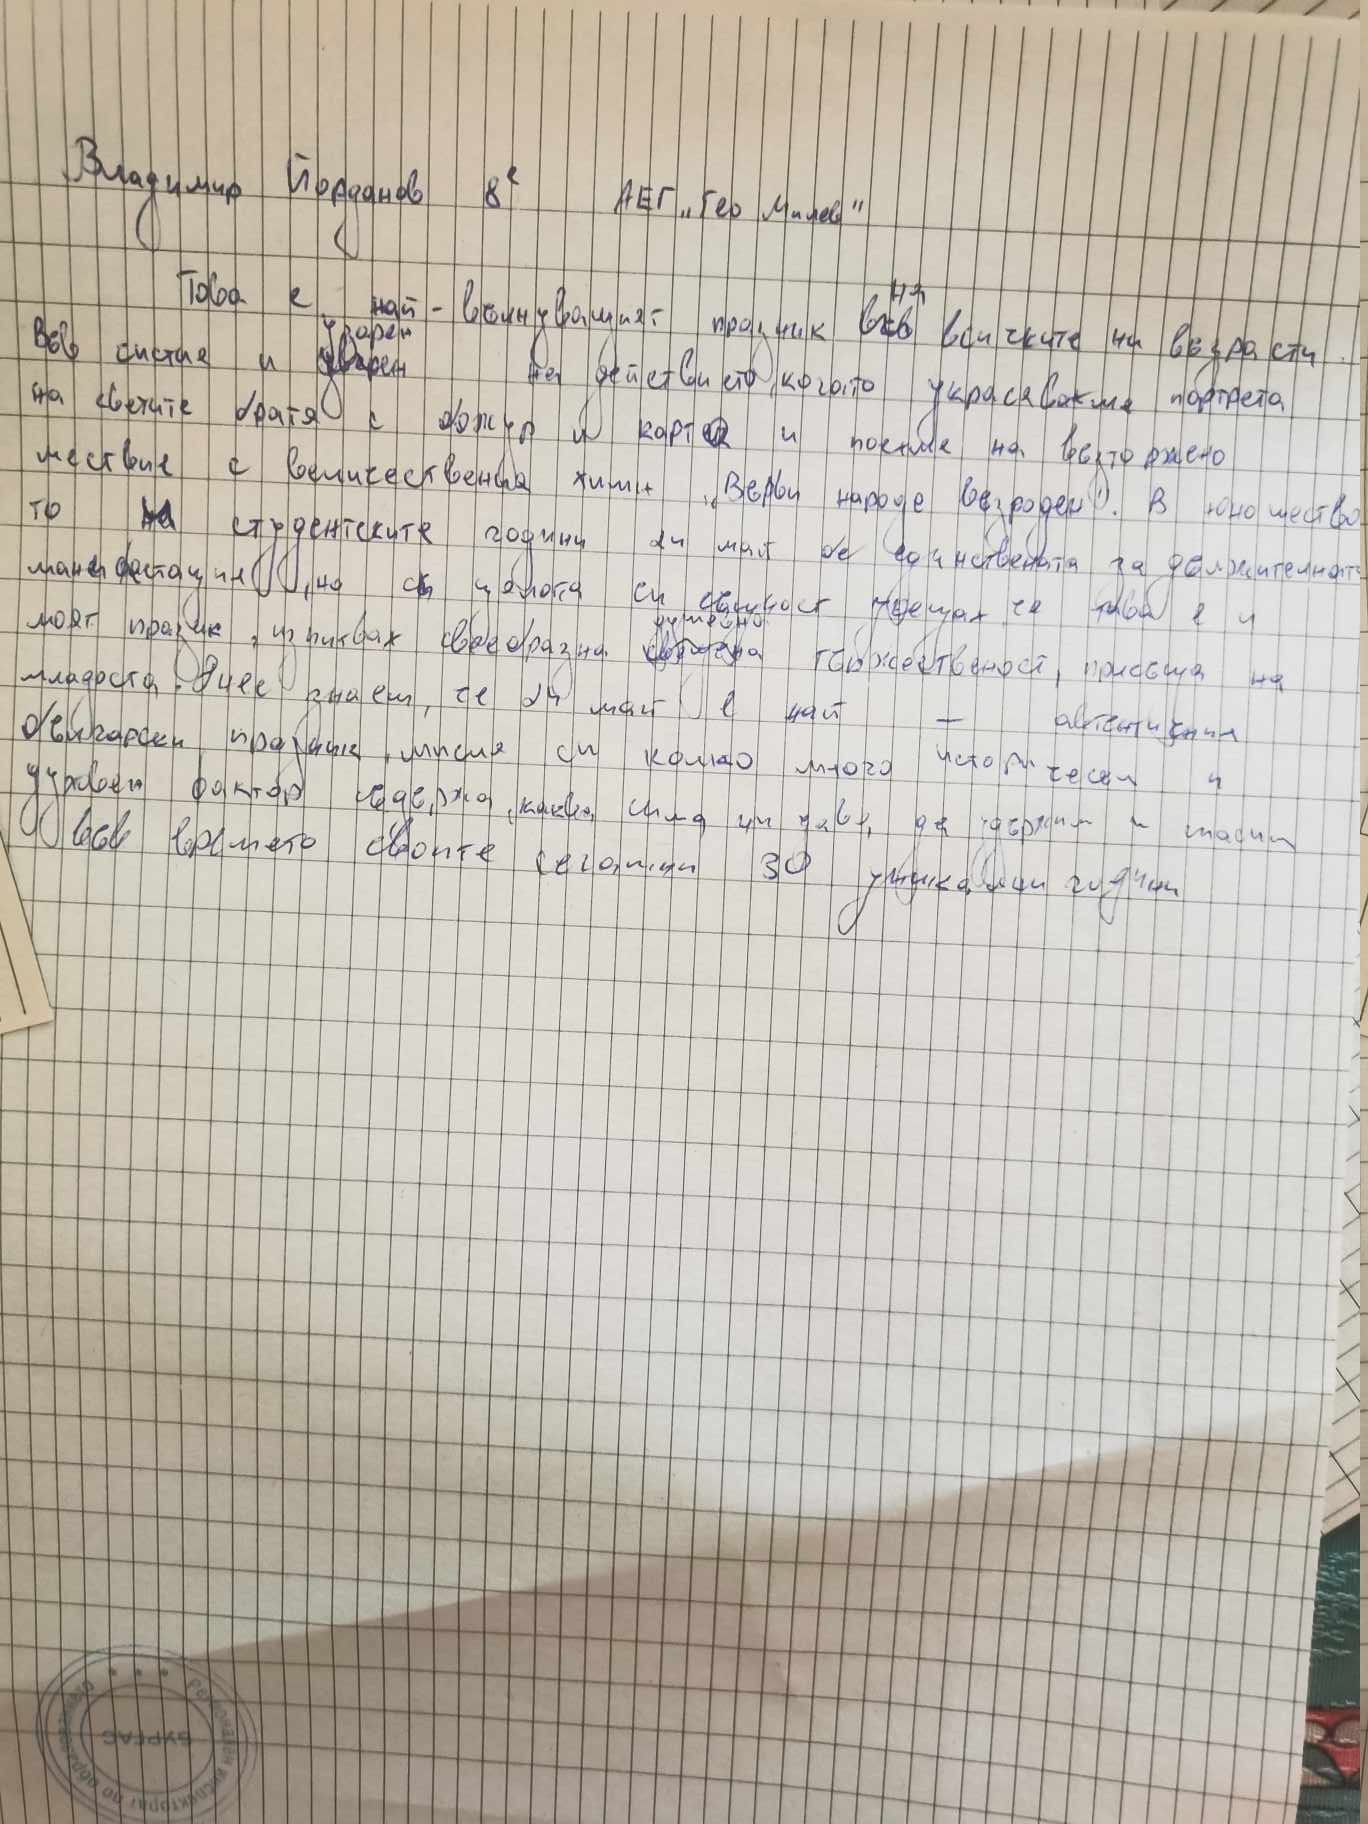 Владимир Йорданов 8е АЕГ „Гео Милев"
Това е най-вълнуващият празник на всичките ни възрасти.
Във систия и узарен на действието, когато украсявахме портрета
на светите братя с божур и карта и поехме на възторжено
шествие с величественния химн „Върви народе възродени". В юношество
то студентските години 24 май бе единствената задължителната
манифестация, но с цялата си същност усещах че това е и
моят празник, изпитвах своеобразна душевна тържественост, присъща на
младоста. Днес знаем, че 24 май е най - автентичния
български празник, мисля си колко много исторически и
духовен фактор съдържа, каква сила ни дава, да удържим и спасим
във времето своите сегашни 30 уникални години
БУРГАС